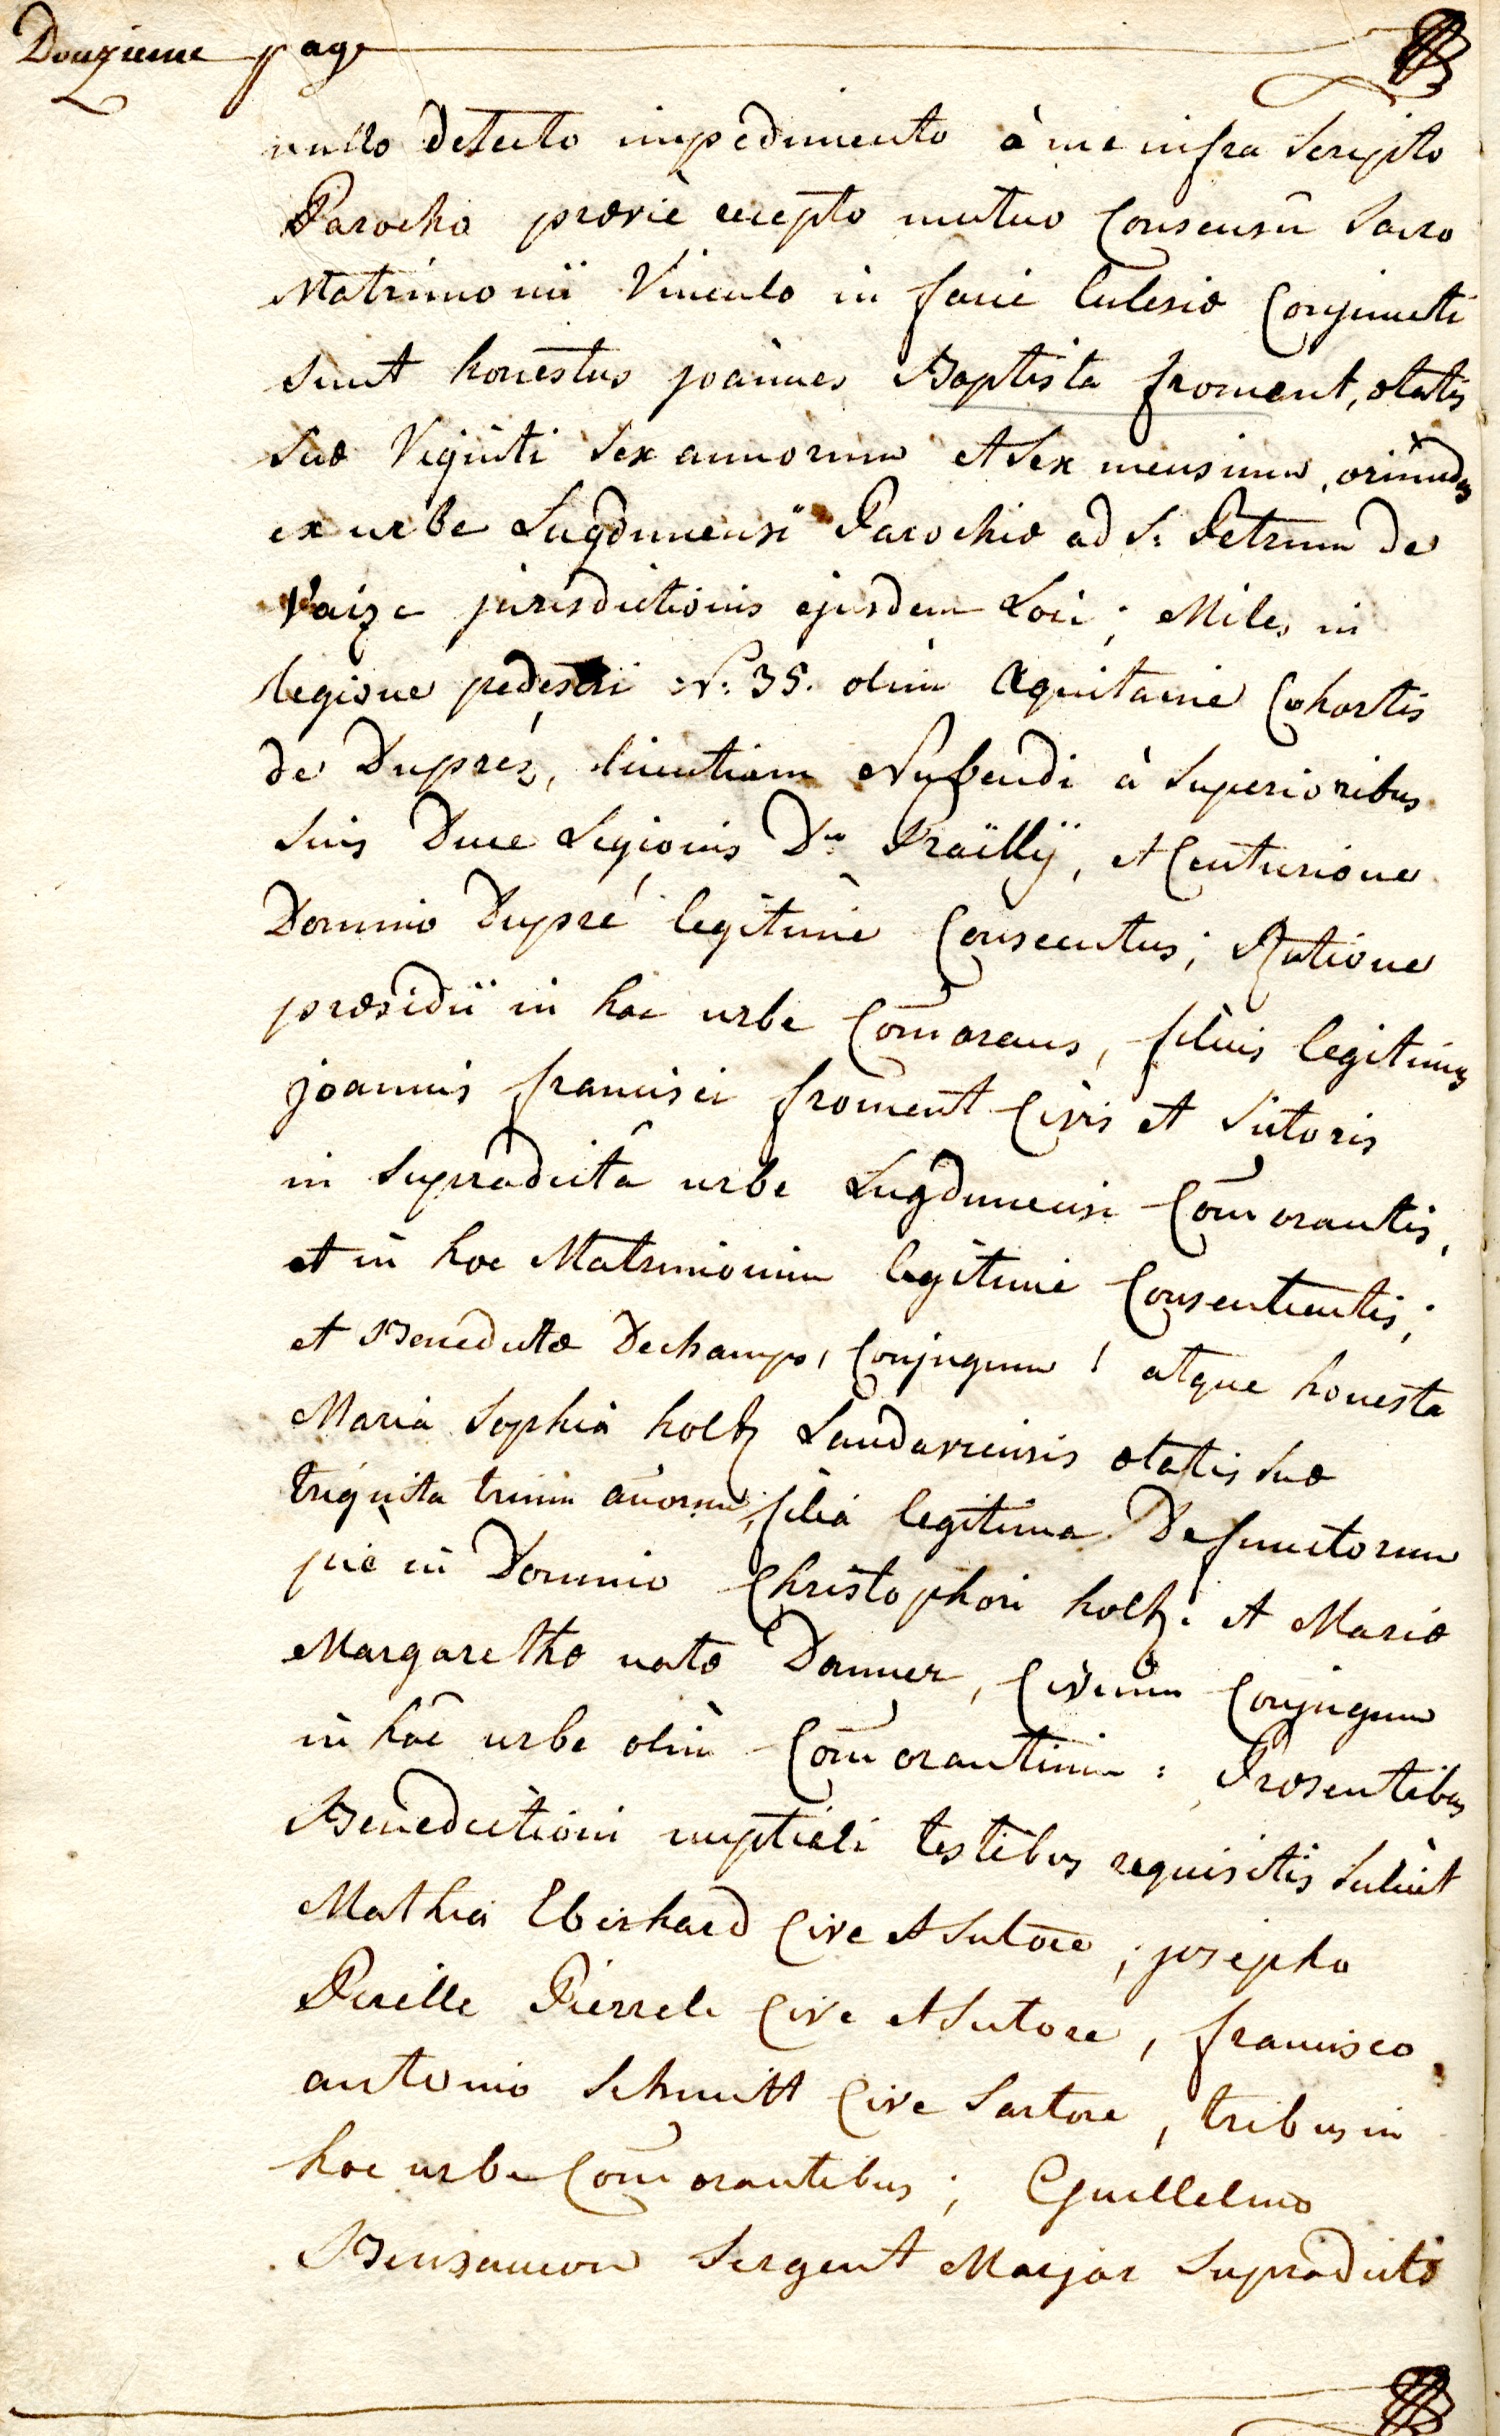 Douzieme page
nullo detecto impedimento à me infra Scripto
Parocho prævié recepto mutuo Consensu Sacro
Matrimonii Vinculo in facie Eclesiæ Conjuncti
Sunt honestus joannes Baptista froment, ætatis
Suæ Viginti Sex annorum et Sex mensium, oriundus
ex urbe Lugdunensi Parochiæ ad S: Petrum de
Vaize jurisdictionis ejusdem Loci; Miles in
legione pedestri N: 35. olim Aquitaine Cohortis
de Duprez, licentiam Nubendi à Superioribus
Suis Duce Legionis Dno Frailly, et Centurione
Domino Dupré legitimè Consecutus; Ratione
præsidii in hac urbe Com̄orans, filius legitimus
joannis francisci froment Civis et Sutoris
in Supradictâ urbe Lugdunensi Com̄orantis,
et in hoc Matrimonium legitimè Consentientis;
et Benedictæ Dechamps, Conjugum! atque honesta
Maria Sophia holtz Landaviensis ætatis Suæ
triginta trium añorum; filia legitima Defunctorum
piè in Domino Christophori holtz. et Mariæ
Margarethæ natæ Danner, Civium Conjugum
in hâc urbe olim Com̄orantium: Præsentibus
Benedictioni nuptiali testibus requisitis Scilicet
Mathia Eberhard Cive et Sutore; josepho
Pierrele Cive et Sutore, francisco
antonio Schmitt Cive Sartore, tribus in
hac urbe Com̄orantibus; Guillelmo
Bensancon Sergent Marjor Supradictæ